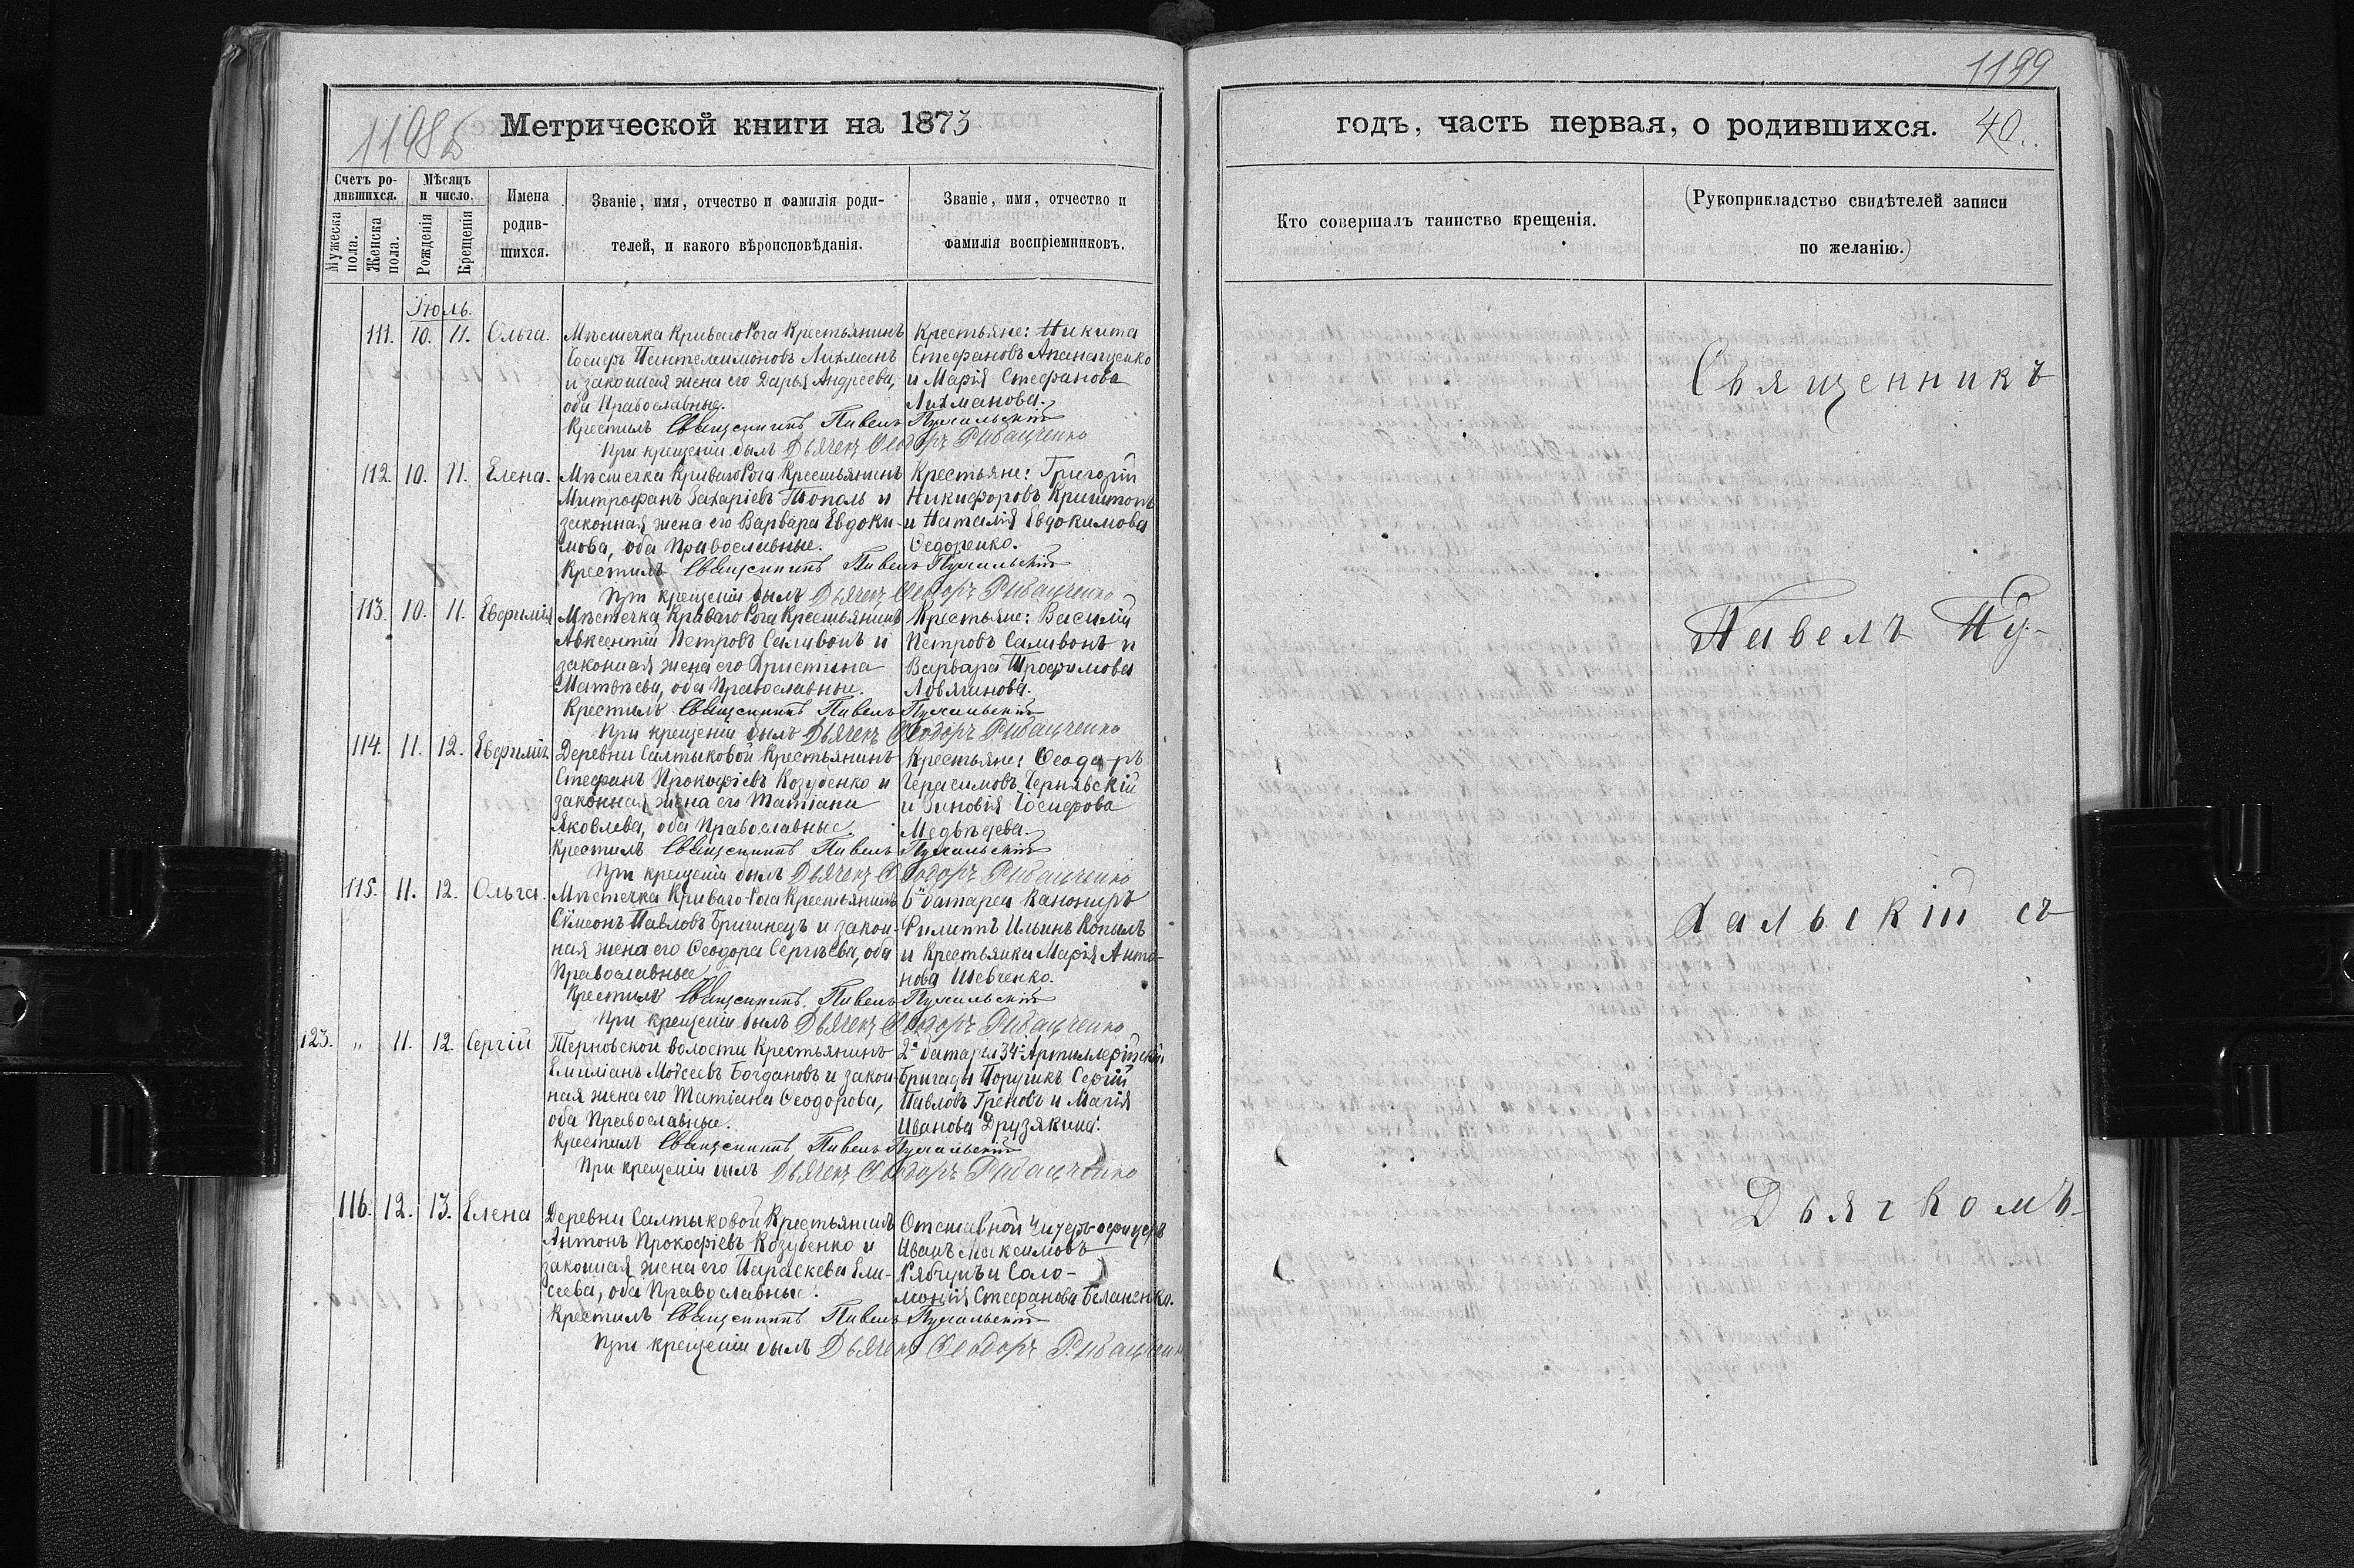 1199
1198
Метрической книги на 1873
годъ, часть первая, о родившихся. 40.
Счетъ родившихся.
Мужеска пола.
Женска пола.
Мѣсяцъ и число.
Рожденія
Крещенія
Имена
родив-
шихся.
Званіе, имя, отчество и фамилія роди-
телей, и какого вѣроисповѣданія.
Званіе, имя, отчество и
фамилія воспріемниковъ.
Кто совершалъ таинство крещенія.
(Рукоприкладство свидѣтелей записи
по желанію.)
Іюль.
111. 10. 11. Ольга. Мѣстечка Криваго Рога Крестьянинъ
Іосифъ Пантелеимоновъ Лихманъ
и законная жена его Дарья Андреева,
оба Православные.
Крестьяне: Никита
Стефановъ
и Марія Стефанова
Лихманова.
Крестилъ Священникъ Павелъ Пухальскій
При крещеніи былъ Дьячекъ Ѳеодоръ Рибальченко
112. 10. 11. Елена. Мѣстечка Криваго Рога Крестьянинъ
Митрофанъ Захаріевъ Тополь и
законная жена его Варвара Евдоки-
мова, оба Православные.
Крестьяне: Григорій
Никифоровъ
и Наталія Евдокимова
Ѳедоренко.
Крестилъ Священникъ Павелъ Пухальскій
При крещеніи былъ Дьячекъ Ѳеодоръ Рибальченко
113. 10. 11. Евфимія Мѣстечка Криваго Рога Крестьянинъ
Авксентій Петровъ Саливонъ и
законная жена его Христина
Матвѣева, оба Православные.
Крестьяне: Василій
Петровъ Саливонъ и
Варвара Трофимова
Ловягинова.
Крестилъ Священникъ Павелъ Пухальскій
При крещеніи былъ Дьячекъ Ѳеодоръ Рибальченко
114. 11. 12. Евфимія Деревни Салтыковой Крестьянинъ
Стефанъ Прокофіевъ Козубенко и
законная жена его Татіана
Яковлева, оба Православные.
Крестьяне: Ѳеодоръ
Герасимовъ Чернявскій
и Зиновія Іосифова
Медвѣдева.
Крестилъ Священникъ Павелъ Пухальскій
При крещеніи былъ Дьячекъ Ѳеодоръ Рибальченко
115. 11. 12. Ольга. Мѣстечка Криваго-Рога Крестьянинъ
Сѵмеонъ Павловъ Бригинецъ и закон-
ная жена его Ѳеодора Сергѣева, оба
Православные
6й батареи Канониръ
Филиппъ Ильинъ Копылъ
и Крестьянка Марія Анто-
нова Шевченко.
Крестилъ Священникъ Павелъ Пухальскій
При крещеніи былъ Дьячекъ Ѳеодоръ Рибальченко
123. " 11. 12. Сергій Терновской волости Крестьянинъ
Емиліанъ Моѵсеевъ Богдановъ и закон-
ная жена его Татіана Ѳеодорова,
оба Православные.
2й батареи 34й Артиллерійской
Бригады Поручикъ Сергій
Павловъ Грековъ и Марія
Иванова Друзякина.
Крестилъ Священникъ Павелъ Пухальскій
При крещеніи былъ Дьячекъ Ѳеодоръ Рибальченко
116. 12. 13. Елена Деревни Салтыковой Крестьянинъ
Антонъ Прокофіевъ Козубенко и
законная жена его Параскева Ели-
сеева, оба Православные.
Отставной Унтеръ-офицеръ
Иванъ Максимовъ
Рябчунъ и Соло-
монія Стефанова Беланенко.
Крестилъ Священникъ Павелъ Пухальскій
При крещеніи былъ Дьячекъ Ѳеодоръ Рибальченко
Священникъ
Павелъ Пу-
хальскій съ
Дьячкомъ